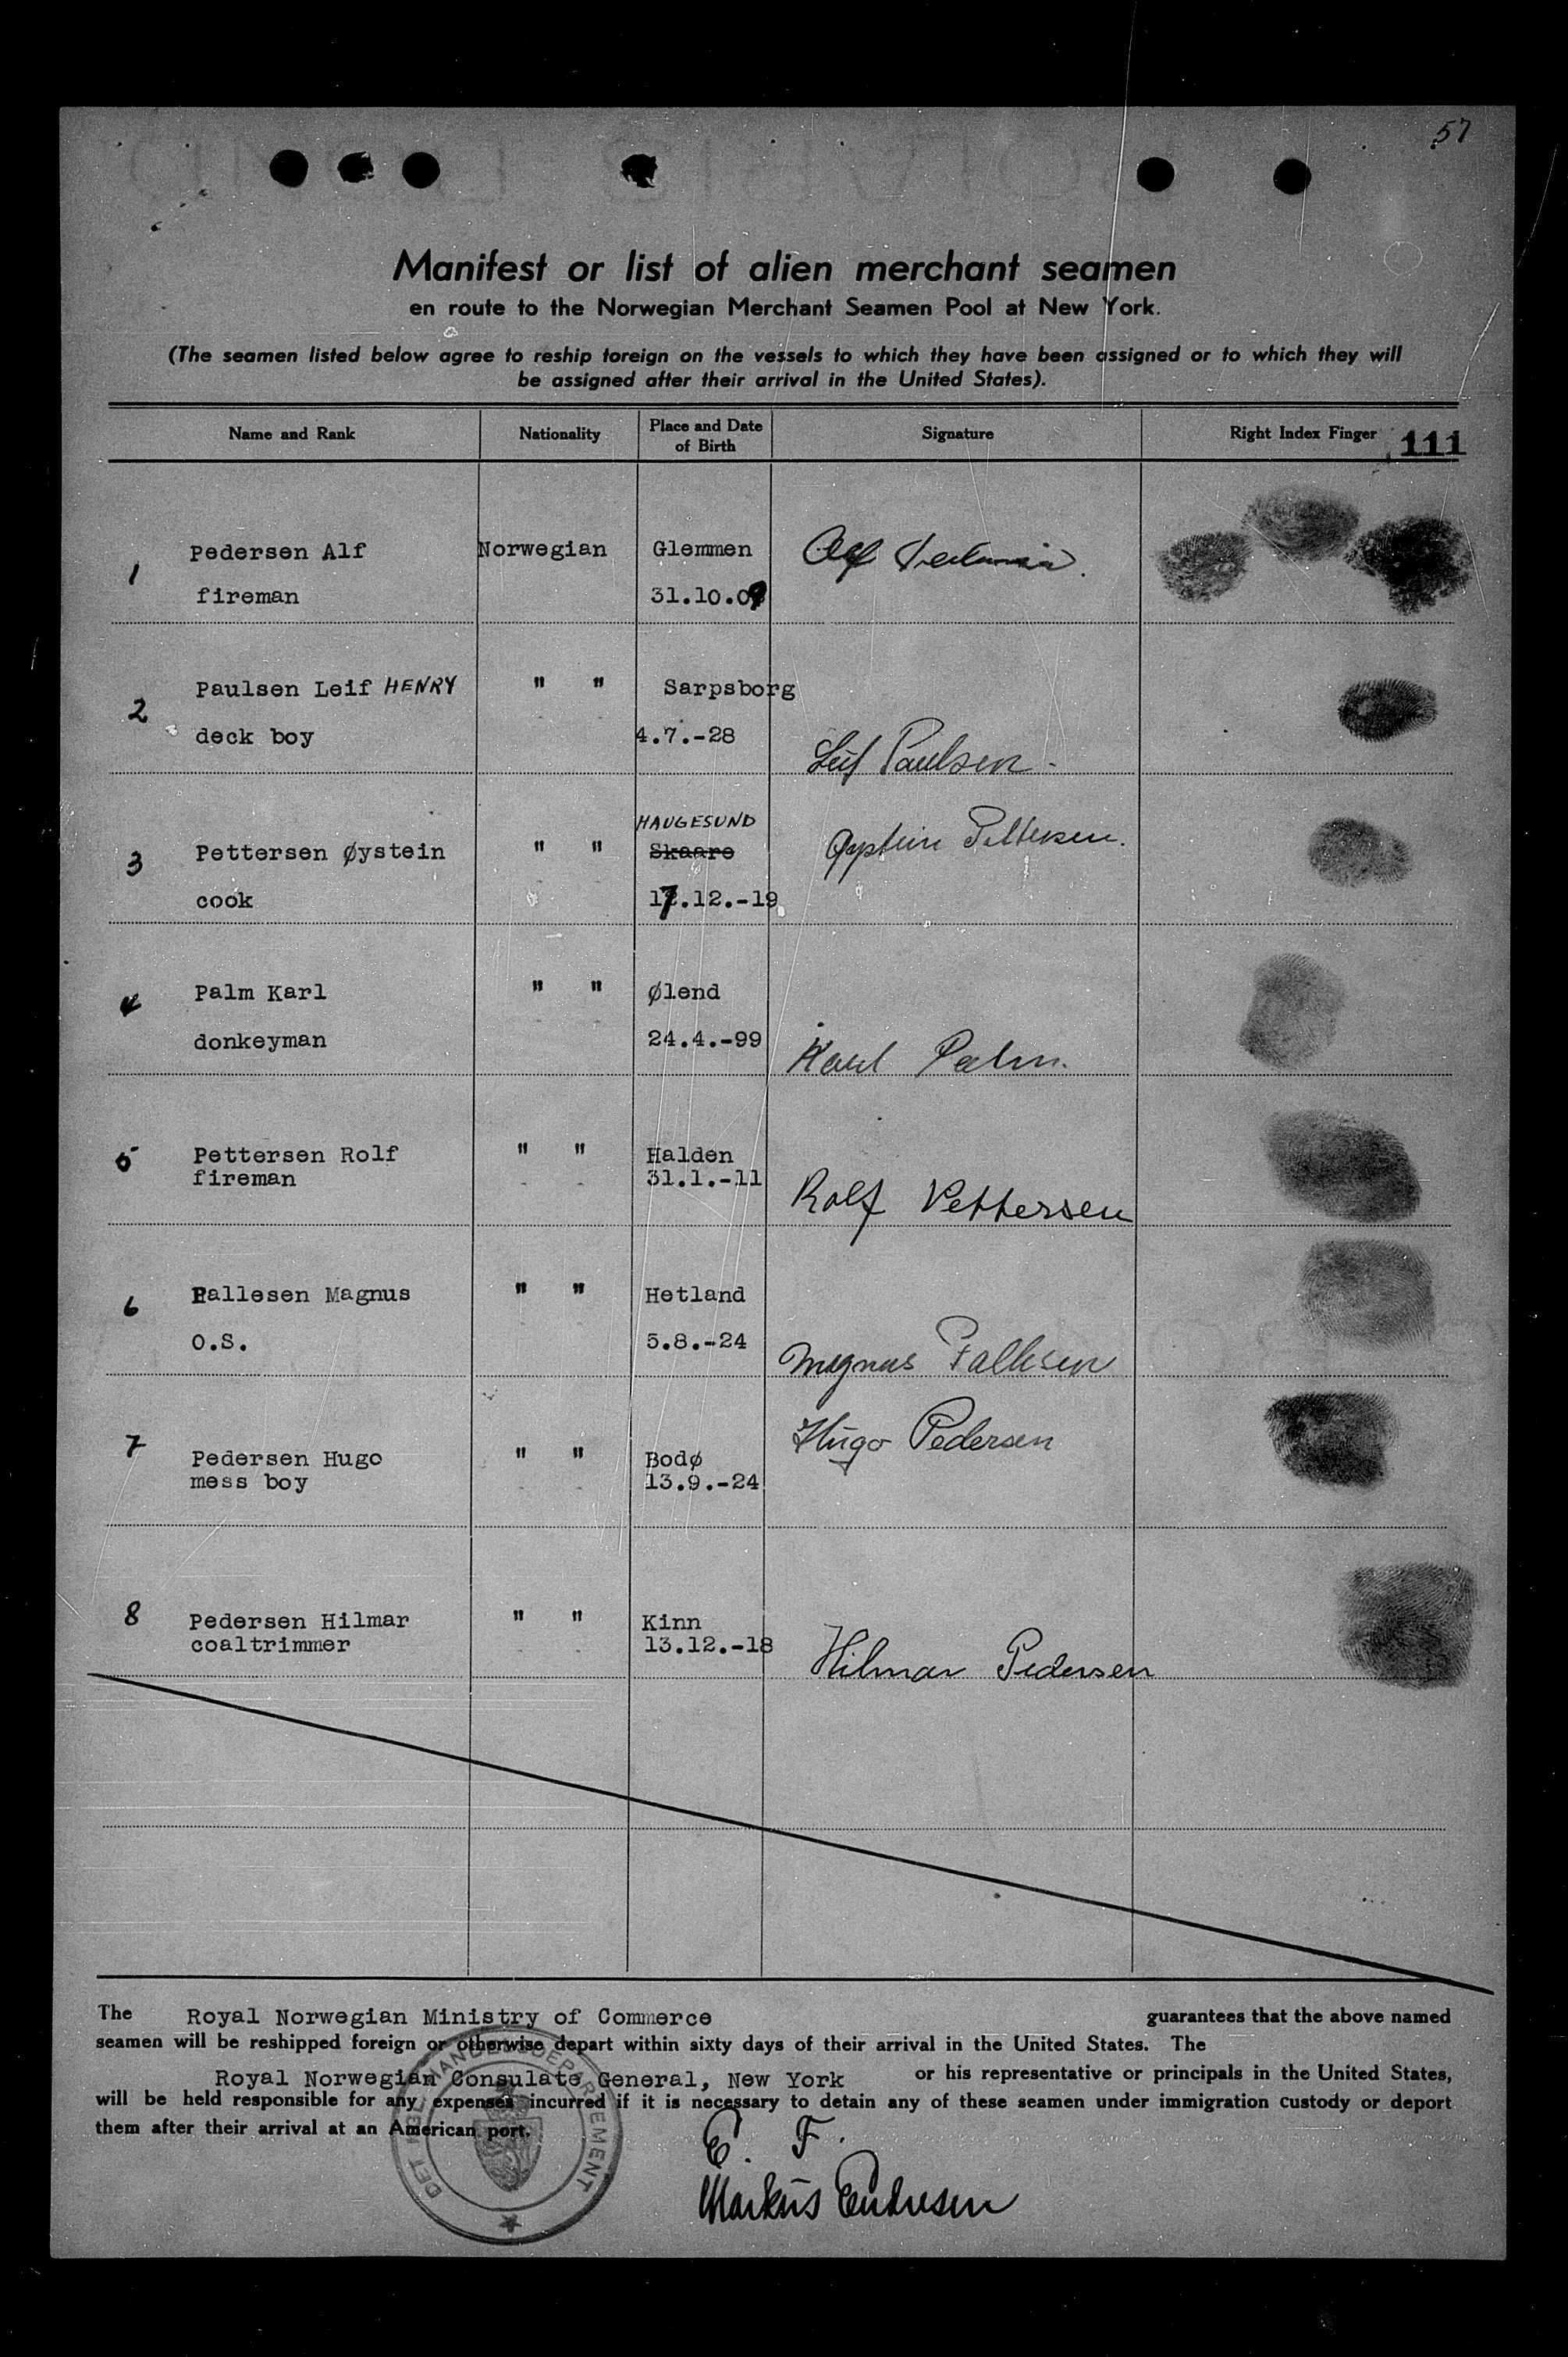 57
Manifest or list of alien merchant seamen
en route to the Norwegian Merchant Seamen Pool at New York.
(The seamen listed below agree to reship foreign on the vessels to which they have been assigned or to which they will
be assigned after their arrival in the United States).
Name and Rank Nationality Place and Date of Birth Signature Right Index Finger 111
1 Pedersen Alf Norwegian Glemmen Alf
fireman 31.10.09
2 Paulsen Leif HENRY " " Sarpsborg
deck boy 4.7.-28 Leif Paulsen
HAUGESUND
3 Pettersen Øystein " " Skaare Øystein Pettersen.
cook 17.12.-19
4 Palm Karl " " Ølend
donkeyman 24.4.-99 Karl Palm.
5 Pettersen Rolf " " Halden
fireman 31.1.-11 Rolf Pettersen
6 Fallesen Magnus " " Hetland
O.S. 5.8.-24 Magnus Fallesen
7 Pedersen Hugo " " Bodø Hugo Pedersen
mess boy 13.9.-24
8 Pedersen Hilmar " " Kinn
coaltrimmer 13.12.-18 Hilmar Pedersen
The Royal Norwegian Ministry of Commerce guarantees that the above named
seamen will be reshipped foreign or otherwise depart within sixty days of their arrival in the United States. The
Royal Norwegian Consulate General, New York or his representative or principals in the United States,
will be held responsible for any expenses incurred if it is necessary to detain any of these seamen under immigration custody or deport
them after their arrival at an American port.
E. F.
Markus Endresen